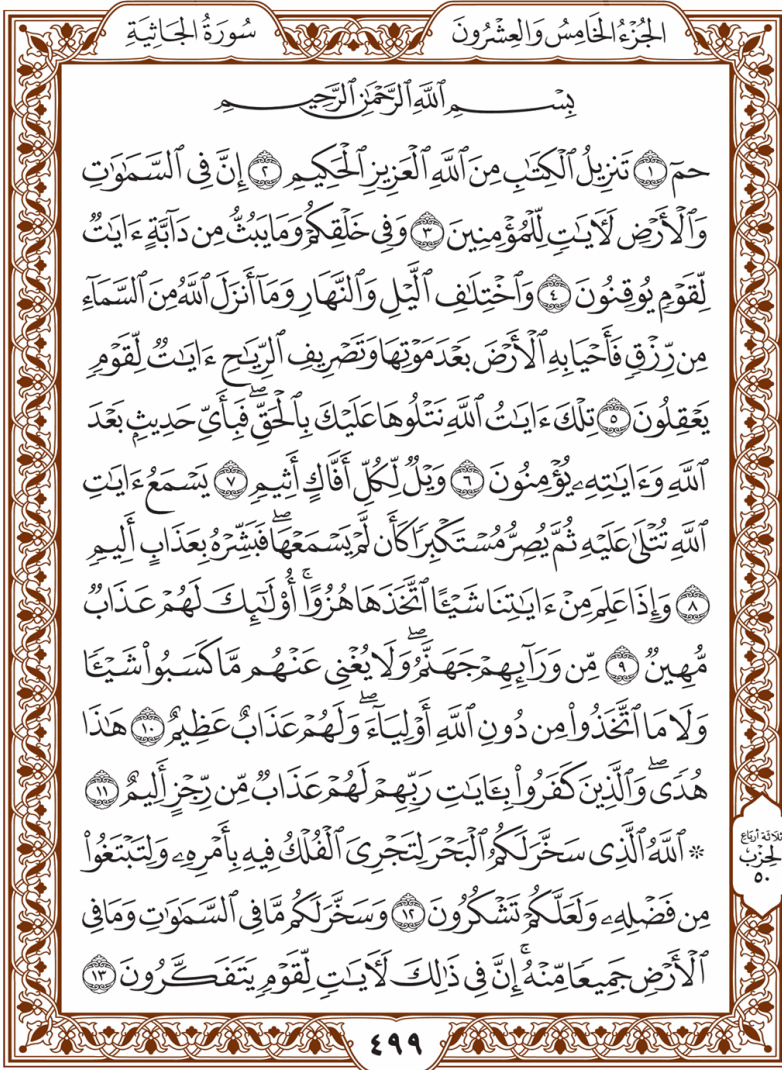 الجُزْءُ الخَامِسُ وَالعِشْرُونَ
سُورَةُ الجَاثِيَةِ
بِسْمِ ٱللَّهِ ٱلرَّحْمَٰنِ ٱلرَّحِيمِ
حمٓ ١ تَنزِيلُ ٱلْكِتَٰبِ مِنَ ٱللَّهِ ٱلْعَزِيزِ ٱلْحَكِيمِ ٢ إِنَّ فِى ٱلسَّمَٰوَٰتِ
وَٱلْأَرْضِ لَءَايَٰتٍ لِّلْمُؤْمِنِينَ ٣ وَفِى خَلْقِكُمْ وَمَا يَبُثُّ مِن دَآبَّةٍ ءَايَٰتٌ
لِّقَوْمٍ يُوقِنُونَ ٤ وَٱخْتِلَٰفِ ٱلَّيْلِ وَٱلنَّهَارِ وَمَآ أَنزَلَ ٱللَّهُ مِنَ ٱلسَّمَآءِ
مِن رِّزْقٍ فَأَحْيَا بِهِ ٱلْأَرْضَ بَعْدَ مَوْتِهَا وَتَصْرِيفِ ٱلرِّيَٰحِ ءَايَٰتٌ لِّقَوْمٍ
يَعْقِلُونَ ٥ تِلْكَ ءَايَٰتُ ٱللَّهِ نَتْلُوهَا عَلَيْكَ بِٱلْحَقِّۖ فَبِأَىِّ حَدِيثٍۭ بَعْدَ
ٱللَّهِ وَءَايَٰتِهِۦ يُؤْمِنُونَ ٦ وَيْلٌ لِّكُلِّ أَفَّاكٍ أَثِيمٍ ٧ يَسْمَعُ ءَايَٰتِ
ٱللَّهِ تُتْلَىٰ عَلَيْهِ ثُمَّ يُصِرُّ مُسْتَكْبِرًا كَأَن لَّمْ يَسْمَعْهَاۖ فَبَشِّرْهُ بِعَذَابٍ أَلِيمٍ
٨ وَإِذَا عَلِمَ مِنْ ءَايَٰتِنَا شَيْـًٔا ٱتَّخَذَهَا هُزُوًاۚ أُو۟لَٰٓئِكَ لَهُمْ عَذَابٌ
مُّهِينٌ ٩ مِّن وَرَآئِهِمْ جَهَنَّمُۖ وَلَا يُغْنِى عَنْهُم مَّا كَسَبُوا۟ شَيْـًٔا
وَلَا مَا ٱتَّخَذُوا۟ مِن دُونِ ٱللَّهِ أَوْلِيَآءَۖ وَلَهُمْ عَذَابٌ عَظِيمٌ ١٠ هَٰذَا
هُدًىۖ وَٱلَّذِينَ كَفَرُوا۟ بِـَٔايَٰتِ رَبِّهِمْ لَهُمْ عَذَابٌ مِّن رِّجْزٍ أَلِيمٌ ١١
۞ ٱللَّهُ ٱلَّذِى سَخَّرَ لَكُمُ ٱلْبَحْرَ لِتَجْرِىَ ٱلْفُلْكُ فِيهِ بِأَمْرِهِۦ وَلِتَبْتَغُوا۟
مِن فَضْلِهِۦ وَلَعَلَّكُمْ تَشْكُرُونَ ١٢ وَسَخَّرَ لَكُم مَّا فِى ٱلسَّمَٰوَٰتِ وَمَا فِى
ٱلْأَرْضِ جَمِيعًا مِّنْهُۚ إِنَّ فِى ذَٰلِكَ لَءَايَٰتٍ لِّقَوْمٍ يَتَفَكَّرُونَ ١٣
ثلاثة أرباع
الحِزْب
٥٠
٤٩٩